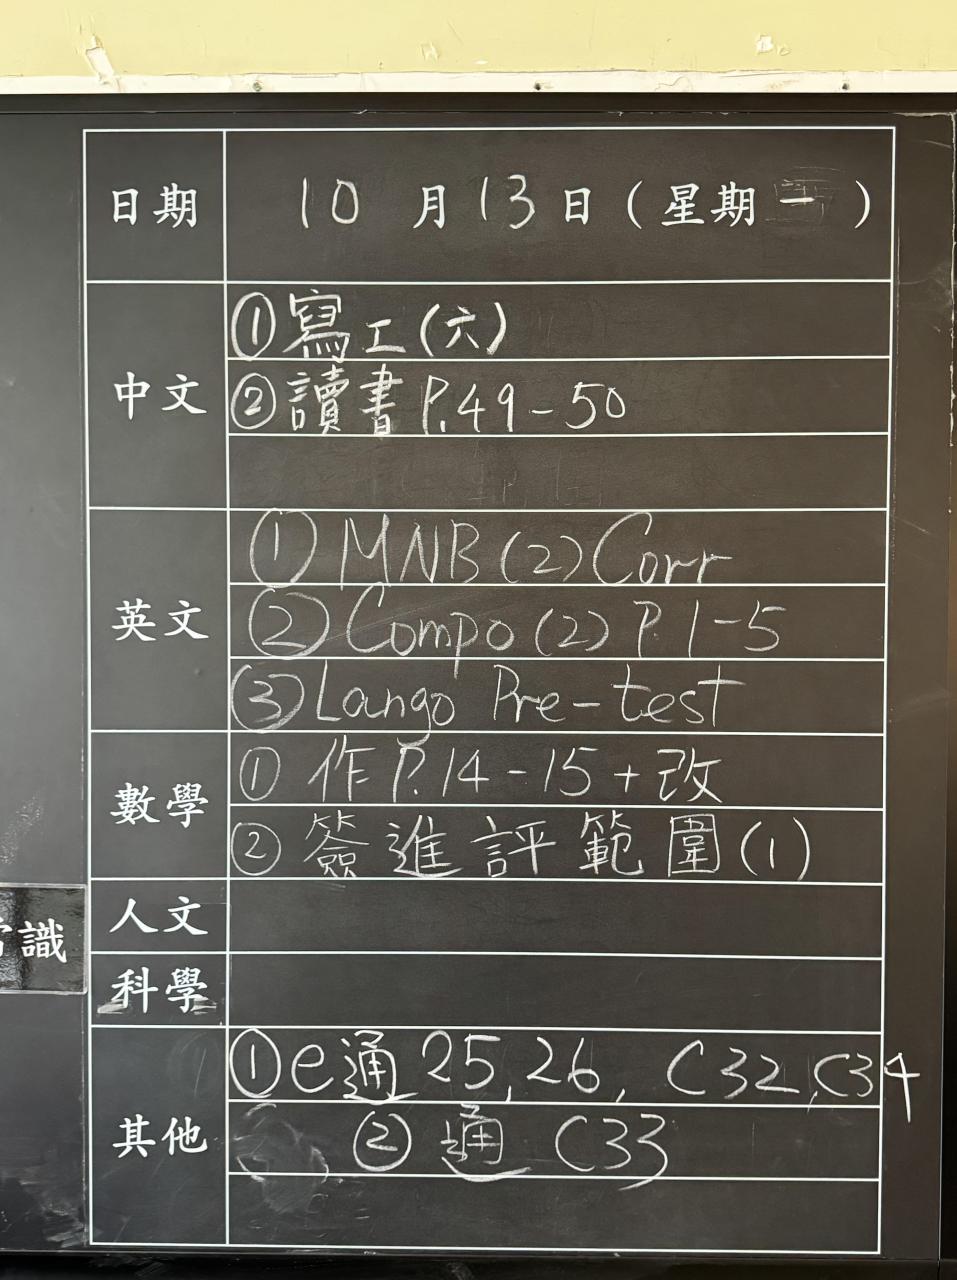 日期 10 月 13 日 (星期 一 )
中文
①寫工(六)
②讀書P.49-50
英文
① MNB (2) Corr
② Compo (2) P. 1-5
③ Longo Pre-test
數學
① 作P.14-15+改
② 簽進評範圍(1)
人文
識
科學
其他
①e通 25, 26, C32, C34
② 通 C33